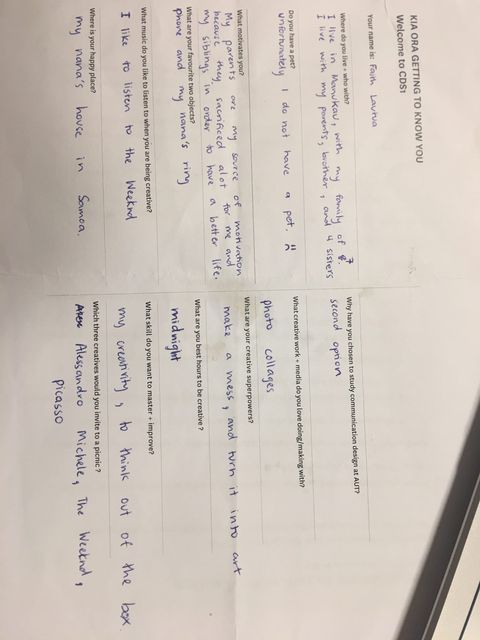 KIA ORA GETTING TO KNOW YOU
Welcome to CDS1
Your name is: Faith Lautua
Where do you live + who with?
I live in Manukau, with my family of 8. 7
I live with my parents, brother, and 4 sisters
Do you have a pet?
unfortunately I do not have a pet.
What motivates you?
My parents are my source of motivation
because they sacrificed alot for me and
my siblings in order to have a better life.
What are your favourite two objects?
phone and my nana's ring
What music do you like to listen to when you are being creative?
I like to listen to the Weeknd
Where is your happy place?
my nana's house in Samoa.
Why have you chosen to study communication design at AUT?
second option
What creative work + media do you love doing/making with?
photo collages
What are your creative superpowers?
make a mess, and turn it into art
What are you best hours to be creative?
midnight
What skill do you want to master + improve?
my creativity, to think out of the box.
Which three creatives would you invite to a picnic?
Alessandro Michele, The Weeknd,
Picasso